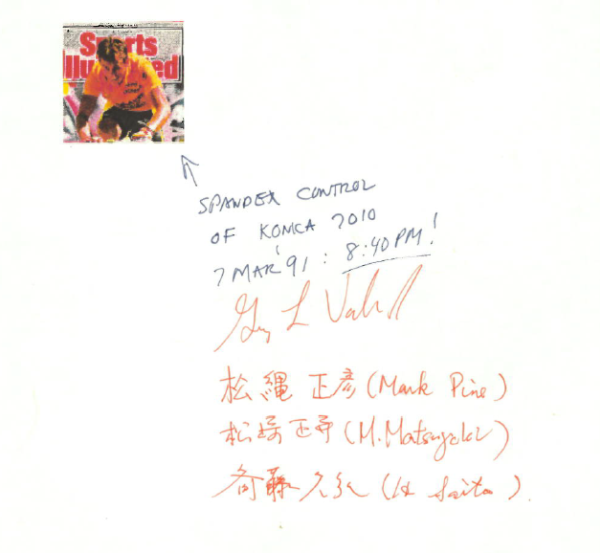 Sports
Illustrated
SPANDEX CONTROL
OF KOMCA 7010
7 MAR '91 : 8:40 PM!
松縄 正彦 (Mark Pine)
松崎 正 (M. Matsuzaki)
斉藤 久 (H. Saito)